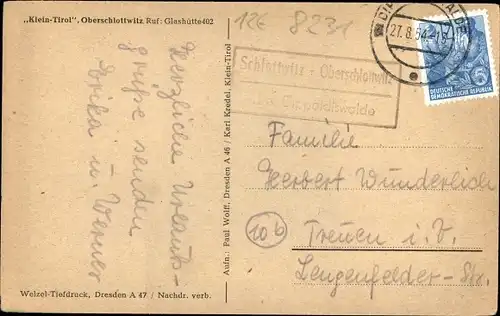 „Klein-Tirol", Oberschlottwitz Ruf: Glashütte 402
12E 8231
27.8.54
DEUTSCHE
DEMOKRATISCHE REPUBLIK
Schlottwitz - Oberschlottwitz
Dippoldiswalde
Herzliche Urlaubs-
grüße senden
Erika u. Werner
Aufn.: Paul Wolff, Dresden A 46 / Karl Kredel, Klein-Tirol
Familie
Herbert Wunderlich
10b
Treuen i. V.
Lengenfelder-Str.
Welzel-Tiefdruck, Dresden A 47 / Nachdr. verb.